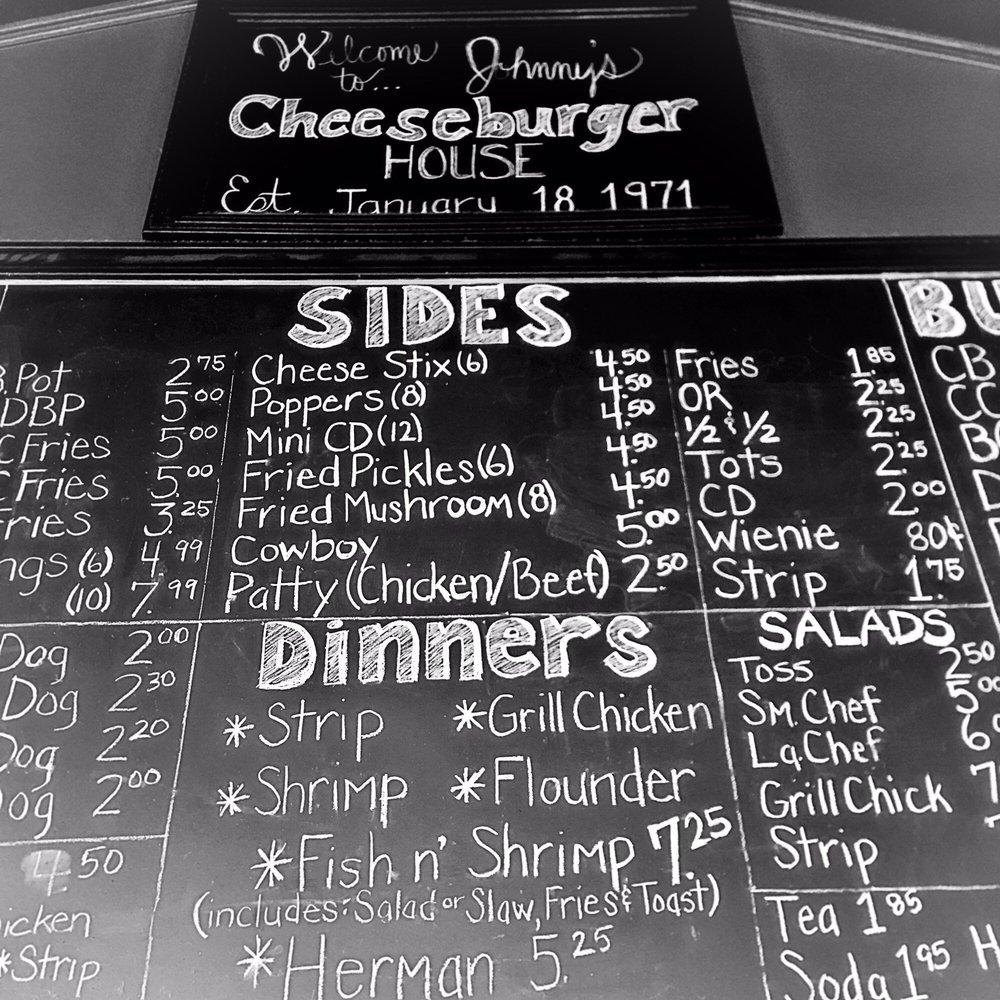 Welcome to... Johnny's
Cheeseburger
HOUSE
Est. January 18 1971
SIDES
Pot 2.75
DBP 5.00
Fries 5.00
Fries 5.00
Fries 3.25
(6) 4.99
(10) 7.99
Cheese Stix (6) 4.50
Poppers (8) 4.50
Mini CD (12) 4.50
Fried Pickles (6) 4.50
Fried Mushroom (8) 4.50
Cowboy 5.00
Patty (Chicken/Beef) 2.50
Fries 1.85
OR 2.25
½ & ½ 2.25
Tots 2.25
CD 2.00
Wienie 80¢
Strip 1.75
BU
CB
Dog 2.00
Dog 2.30
Dog 2.20
Dog 2.00
4.50
icken
*Strip
Dinners
*Strip *Grill Chicken
*Shrimp *Flounder
*Fish n' Shrimp 7.25
(includes: Salad or Slaw, Fries & Toast)
*Herman 5.25
SALADS
Toss 2.50
Sm. Chef 5.00
Lg. Chef 6
Grill Chick 7
Strip
Tea 1.85
Soda 1.95
H